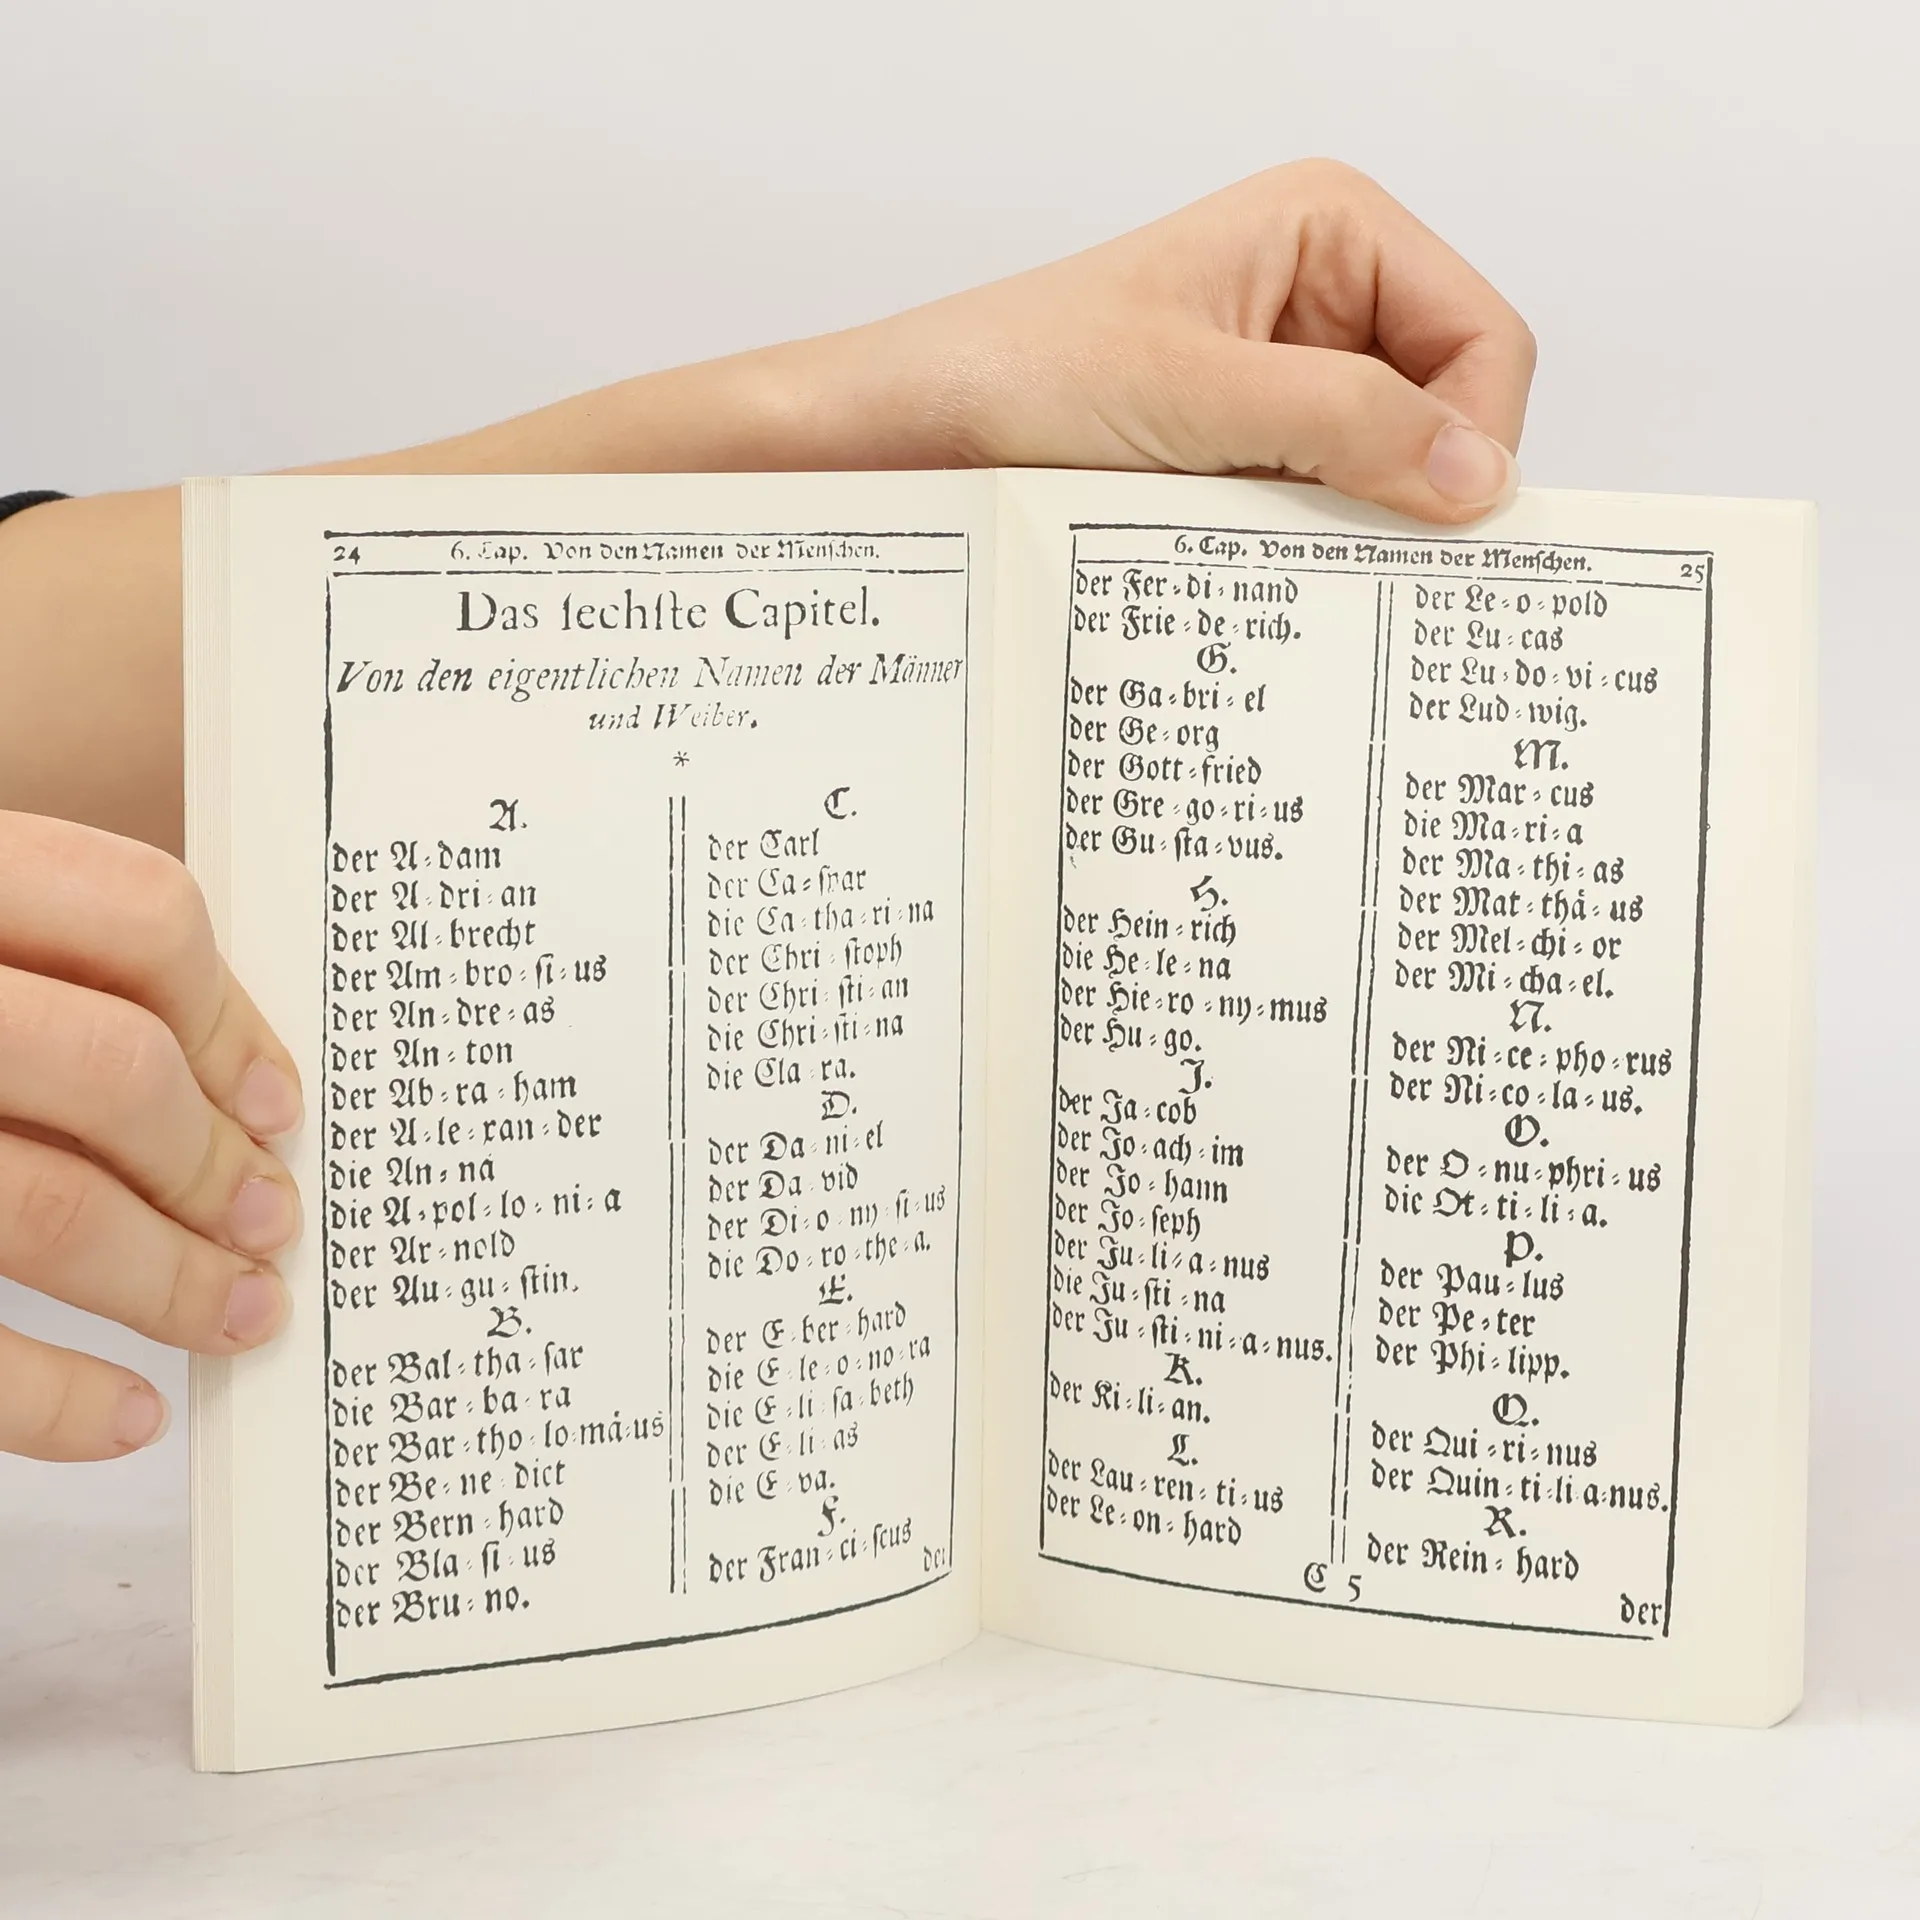 24 6. Cap. Von den Namen der Menschen.
Das sechste Capitel.
Von den eigentlichen Namen der Männer
und Weiber.
*
A.
der A⸗dam
der A⸗dri⸗an
der Al⸗brecht
der Am⸗bro⸗si⸗us
der An⸗dre⸗as
der An⸗ton
der Ab⸗ra⸗ham
der A⸗le⸗xan⸗der
die An⸗na
die A⸗pol⸗lo⸗ni⸗a
der Ar⸗nold
der Au⸗gu⸗stin.
B.
der Bal⸗tha⸗sar
die Bar⸗ba⸗ra
der Bar⸗tho⸗lo⸗mä⸗us
der Be⸗ne⸗dict
der Bern⸗hard
der Bla⸗si⸗us
der Bru⸗no.
C.
der Carl
der Ca⸗spar
die Ca⸗tha⸗ri⸗na
der Chri⸗stoph
der Chri⸗sti⸗an
die Chri⸗sti⸗na
die Cla⸗ra.
D.
der Da⸗ni⸗el
der Da⸗vid
der Di⸗o⸗ny⸗si⸗us
die Do⸗ro⸗the⸗a.
E.
der E⸗ber⸗hard
die E⸗le⸗o⸗no⸗ra
die E⸗li⸗sa⸗beth
der E⸗li⸗as
die E⸗va.
F.
der Fran⸗ci⸗scus
der
6. Cap. Von den Namen der Menschen. 25
der Fer⸗di⸗nand
der Frie⸗de⸗rich.
G.
der Ga⸗bri⸗el
der Ge⸗org
der Gott⸗fried
der Gre⸗go⸗ri⸗us
der Gu⸗sta⸗vus.
H.
der Hein⸗rich
die He⸗le⸗na
der Hie⸗ro⸗ny⸗mus
der Hu⸗go.
J.
der Ja⸗cob
der Jo⸗ach⸗im
der Jo⸗hann
der Jo⸗seph
der Ju⸗li⸗a⸗nus
die Ju⸗sti⸗na
der Ju⸗sti⸗ni⸗a⸗nus.
K.
der Ki⸗li⸗an.
L.
der Lau⸗ren⸗ti⸗us
der Le⸗on⸗hard
der Le⸗o⸗pold
der Lu⸗cas
der Lu⸗do⸗vi⸗cus
der Lud⸗wig.
M.
der Mar⸗cus
die Ma⸗ri⸗a
der Ma⸗thi⸗as
der Mat⸗thä⸗us
der Mel⸗chi⸗or
der Mi⸗cha⸗el.
N.
der Ni⸗ce⸗pho⸗rus
der Ni⸗co⸗la⸗us.
O.
der O⸗nu⸗phri⸗us
die Ot⸗ti⸗li⸗a.
P.
der Pau⸗lus
der Pe⸗ter
der Phi⸗lipp.
Q.
der Qui⸗ri⸗nus
der Quin⸗ti⸗li⸗a⸗nus.
R.
der Rein⸗hard
C 5
der